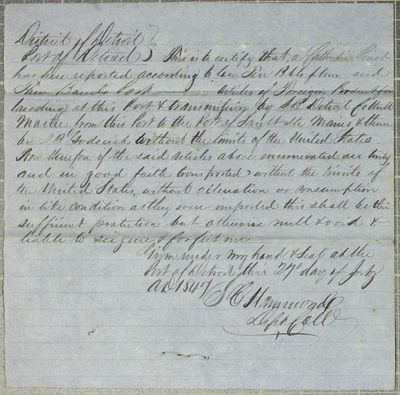 District of Detroit
Port of Detroit } This is to certify that a
has here reported according to law Ten Bbls flour and
Three Barrels Pork Articles of Foreign
landing at this Port & transmission by St Bt Detroit
Master from this Port to the Port of Sault Ste Marie & thence
by without the limits of the United States
Now therefore if the said articles above enumerated are truly
and in good faith transported without the limits of
the United States without alteration or consumption
in like condition as they were imported this shall be their
sufficient protection but otherwise null & void &
liable to seizure & forfeiture
Given under my hand & Seal at the
Port of Detroit this 27th day of July
AD 1847
Hammond
Dept Coll